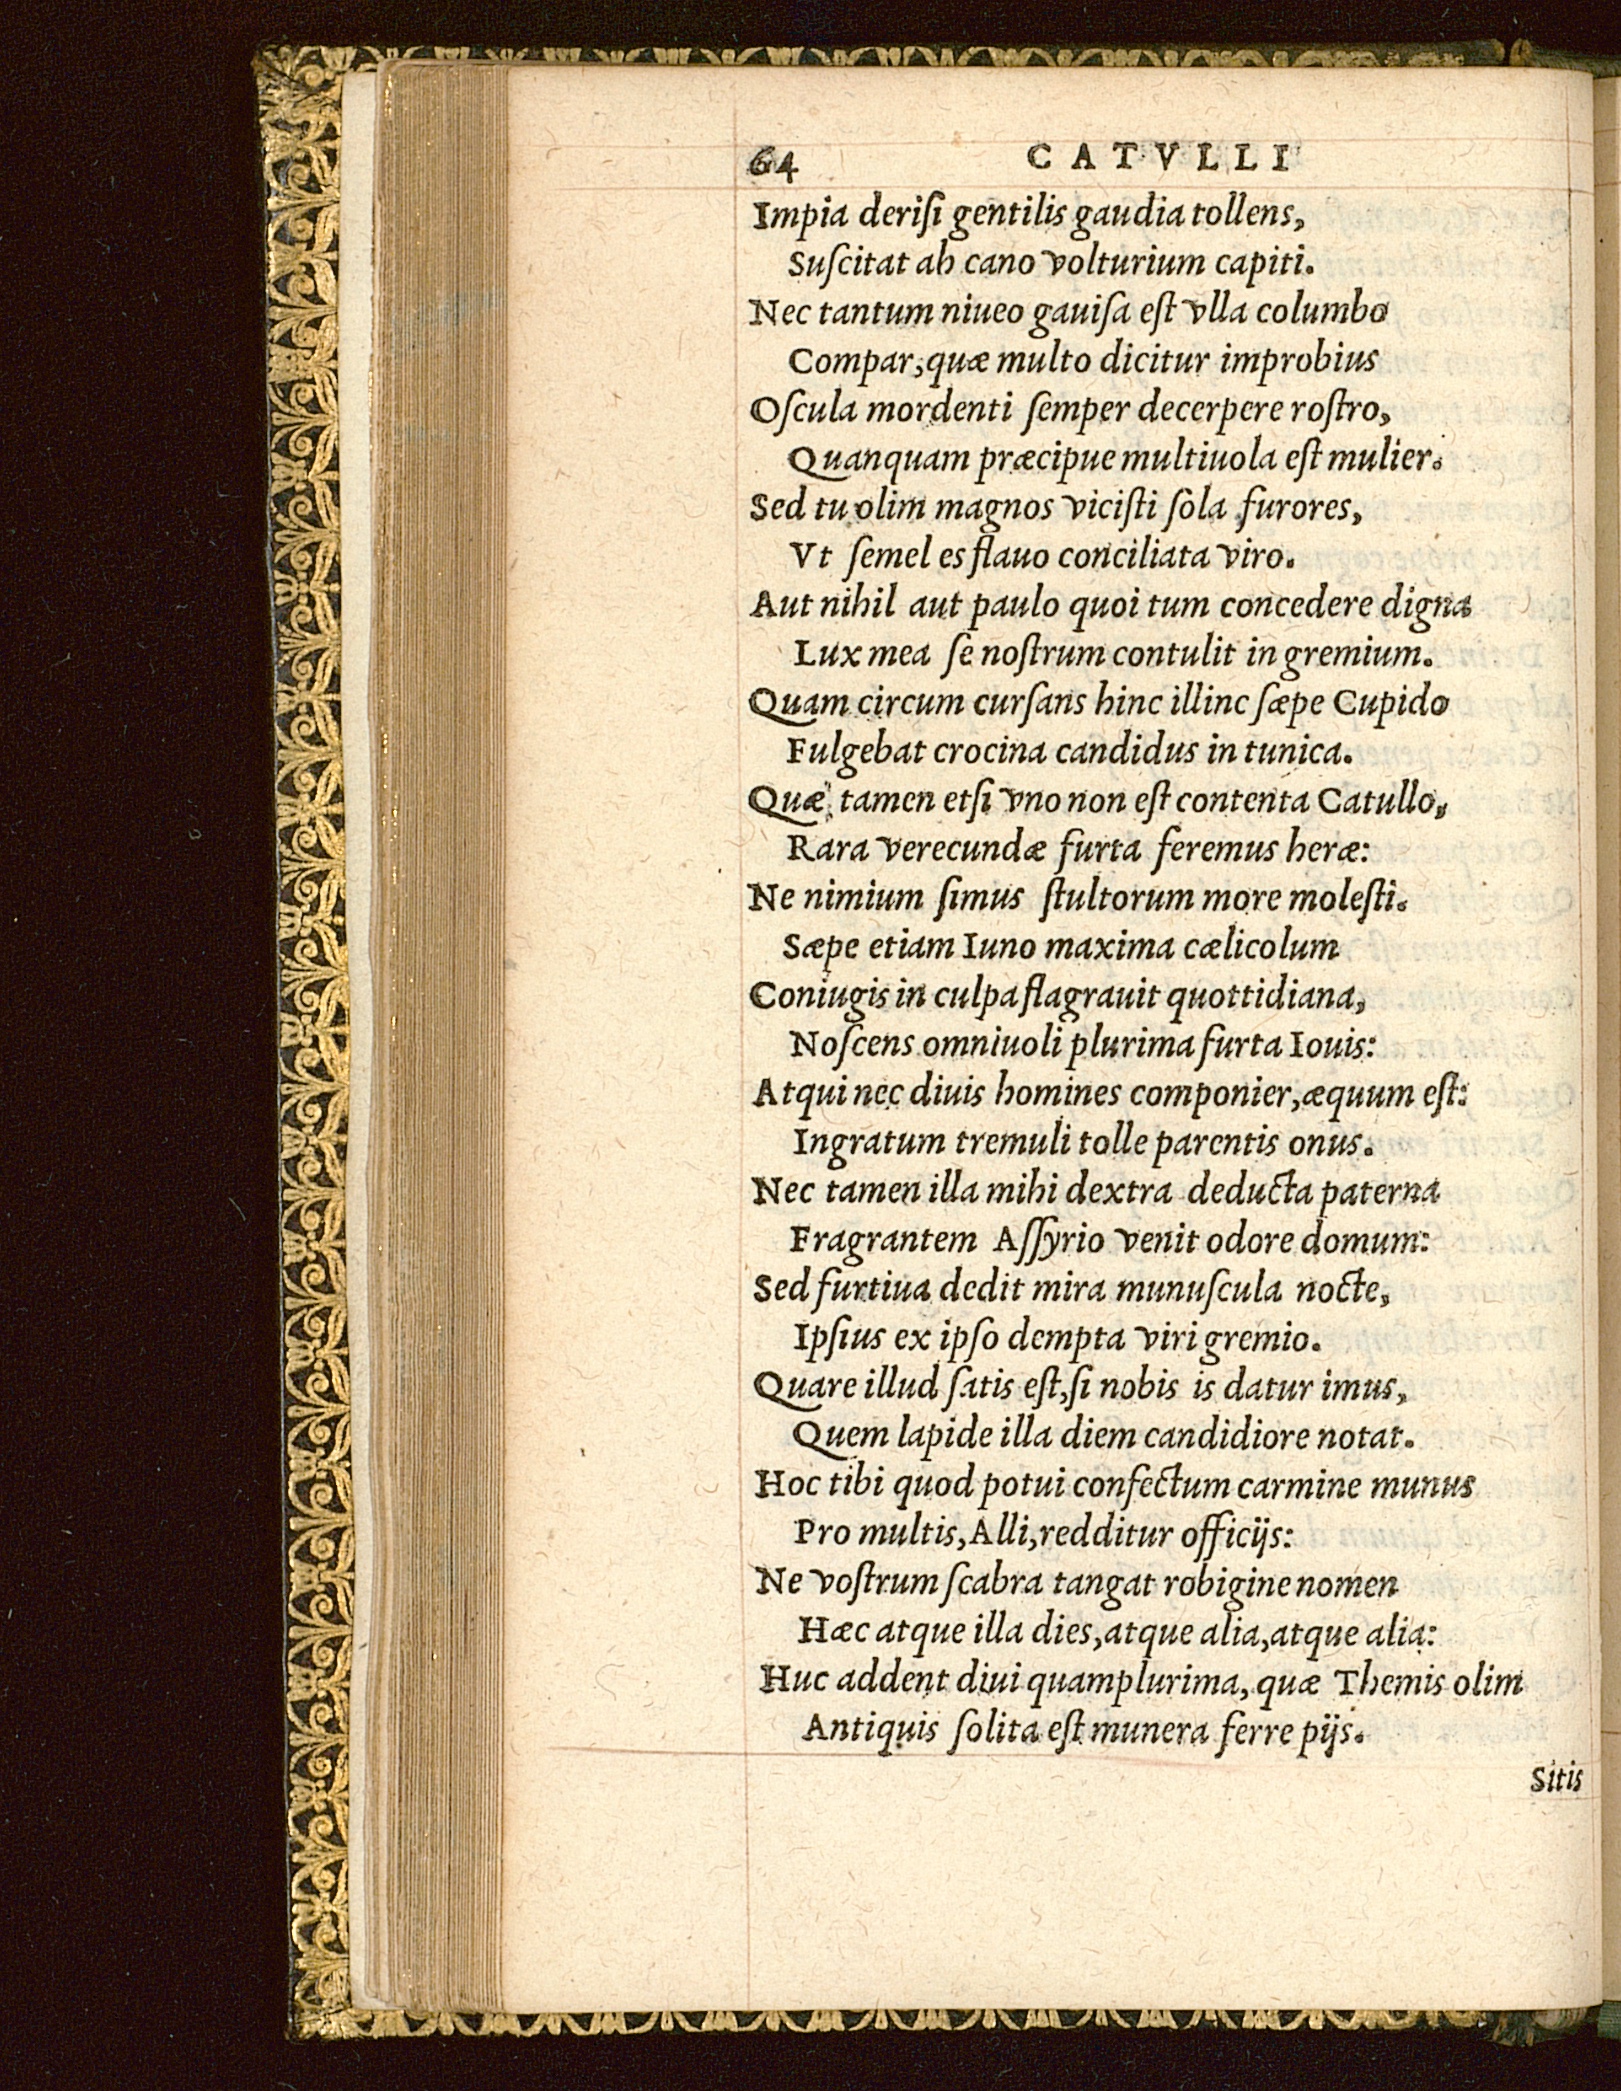 64 CATVLLI
Impia deriſi gentilis gaudia tollens,
Suſcitat ab cano volturium capiti.
Nec tantum niueo gauiſa eſt vlla columbo
Compar, quæ multo dicitur improbius
Oſcula mordenti ſemper decerpere roſtro,
Quanquam præcipue multiuola eſt mulier.
Sed tu olim magnos viciſti ſola furores,
Vt ſemel es flauo conciliata viro.
Aut nihil aut paulo quoi tum concedere digna
Lux mea ſe noſtrum contulit in gremium.
Quam circum curſans hinc illinc ſæpe Cupido
Fulgebat crocina candidus in tunica.
Quæ tamen etſi vno non eſt contenta Catullo,
Rara verecundæ furta feremus heræ:
Ne nimium ſimus ſtultorum more moleſti.
Sæpe etiam Iuno maxima cælicolum
Coniugis in culpa flagrauit quottidiana,
Noſcens omniuoli plurima furta Iouis:
Atqui nec diuis homines componier, æquum eſt:
Ingratum tremuli tolle parentis onus.
Nec tamen illa mihi dextra deducta paterna
Fragrantem Aſſyrio venit odore domum:
Sed furtiua dedit mira munuſcula nocte,
Ipſius ex ipſo dempta viri gremio.
Quare illud ſatis eſt, ſi nobis is datur imus,
Quem lapide illa diem candidiore notat.
Hoc tibi quod potui confectum carmine munus
Pro multis, Alli, redditur officijs:
Ne voſtrum ſcabra tangat robigine nomen
Hæc atque illa dies, atque alia, atque alia:
Huc addent diui quamplurima, quæ Themis olim
Antiquis ſolita eſt munera ferre pijs.
Sitis